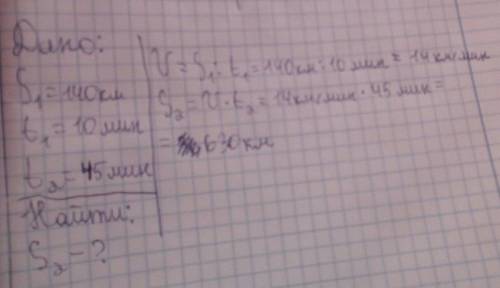 Дано:
S₁ = 140 км
t₁ = 10 мин
t₂ = 45 мин
Найти:
S₂ - ?
V = S₁ : t₁ = 140 км : 10 мин = 14 км/мин
S₂ = V · t₂ = 14 км/мин · 45 мин =
= 630 км